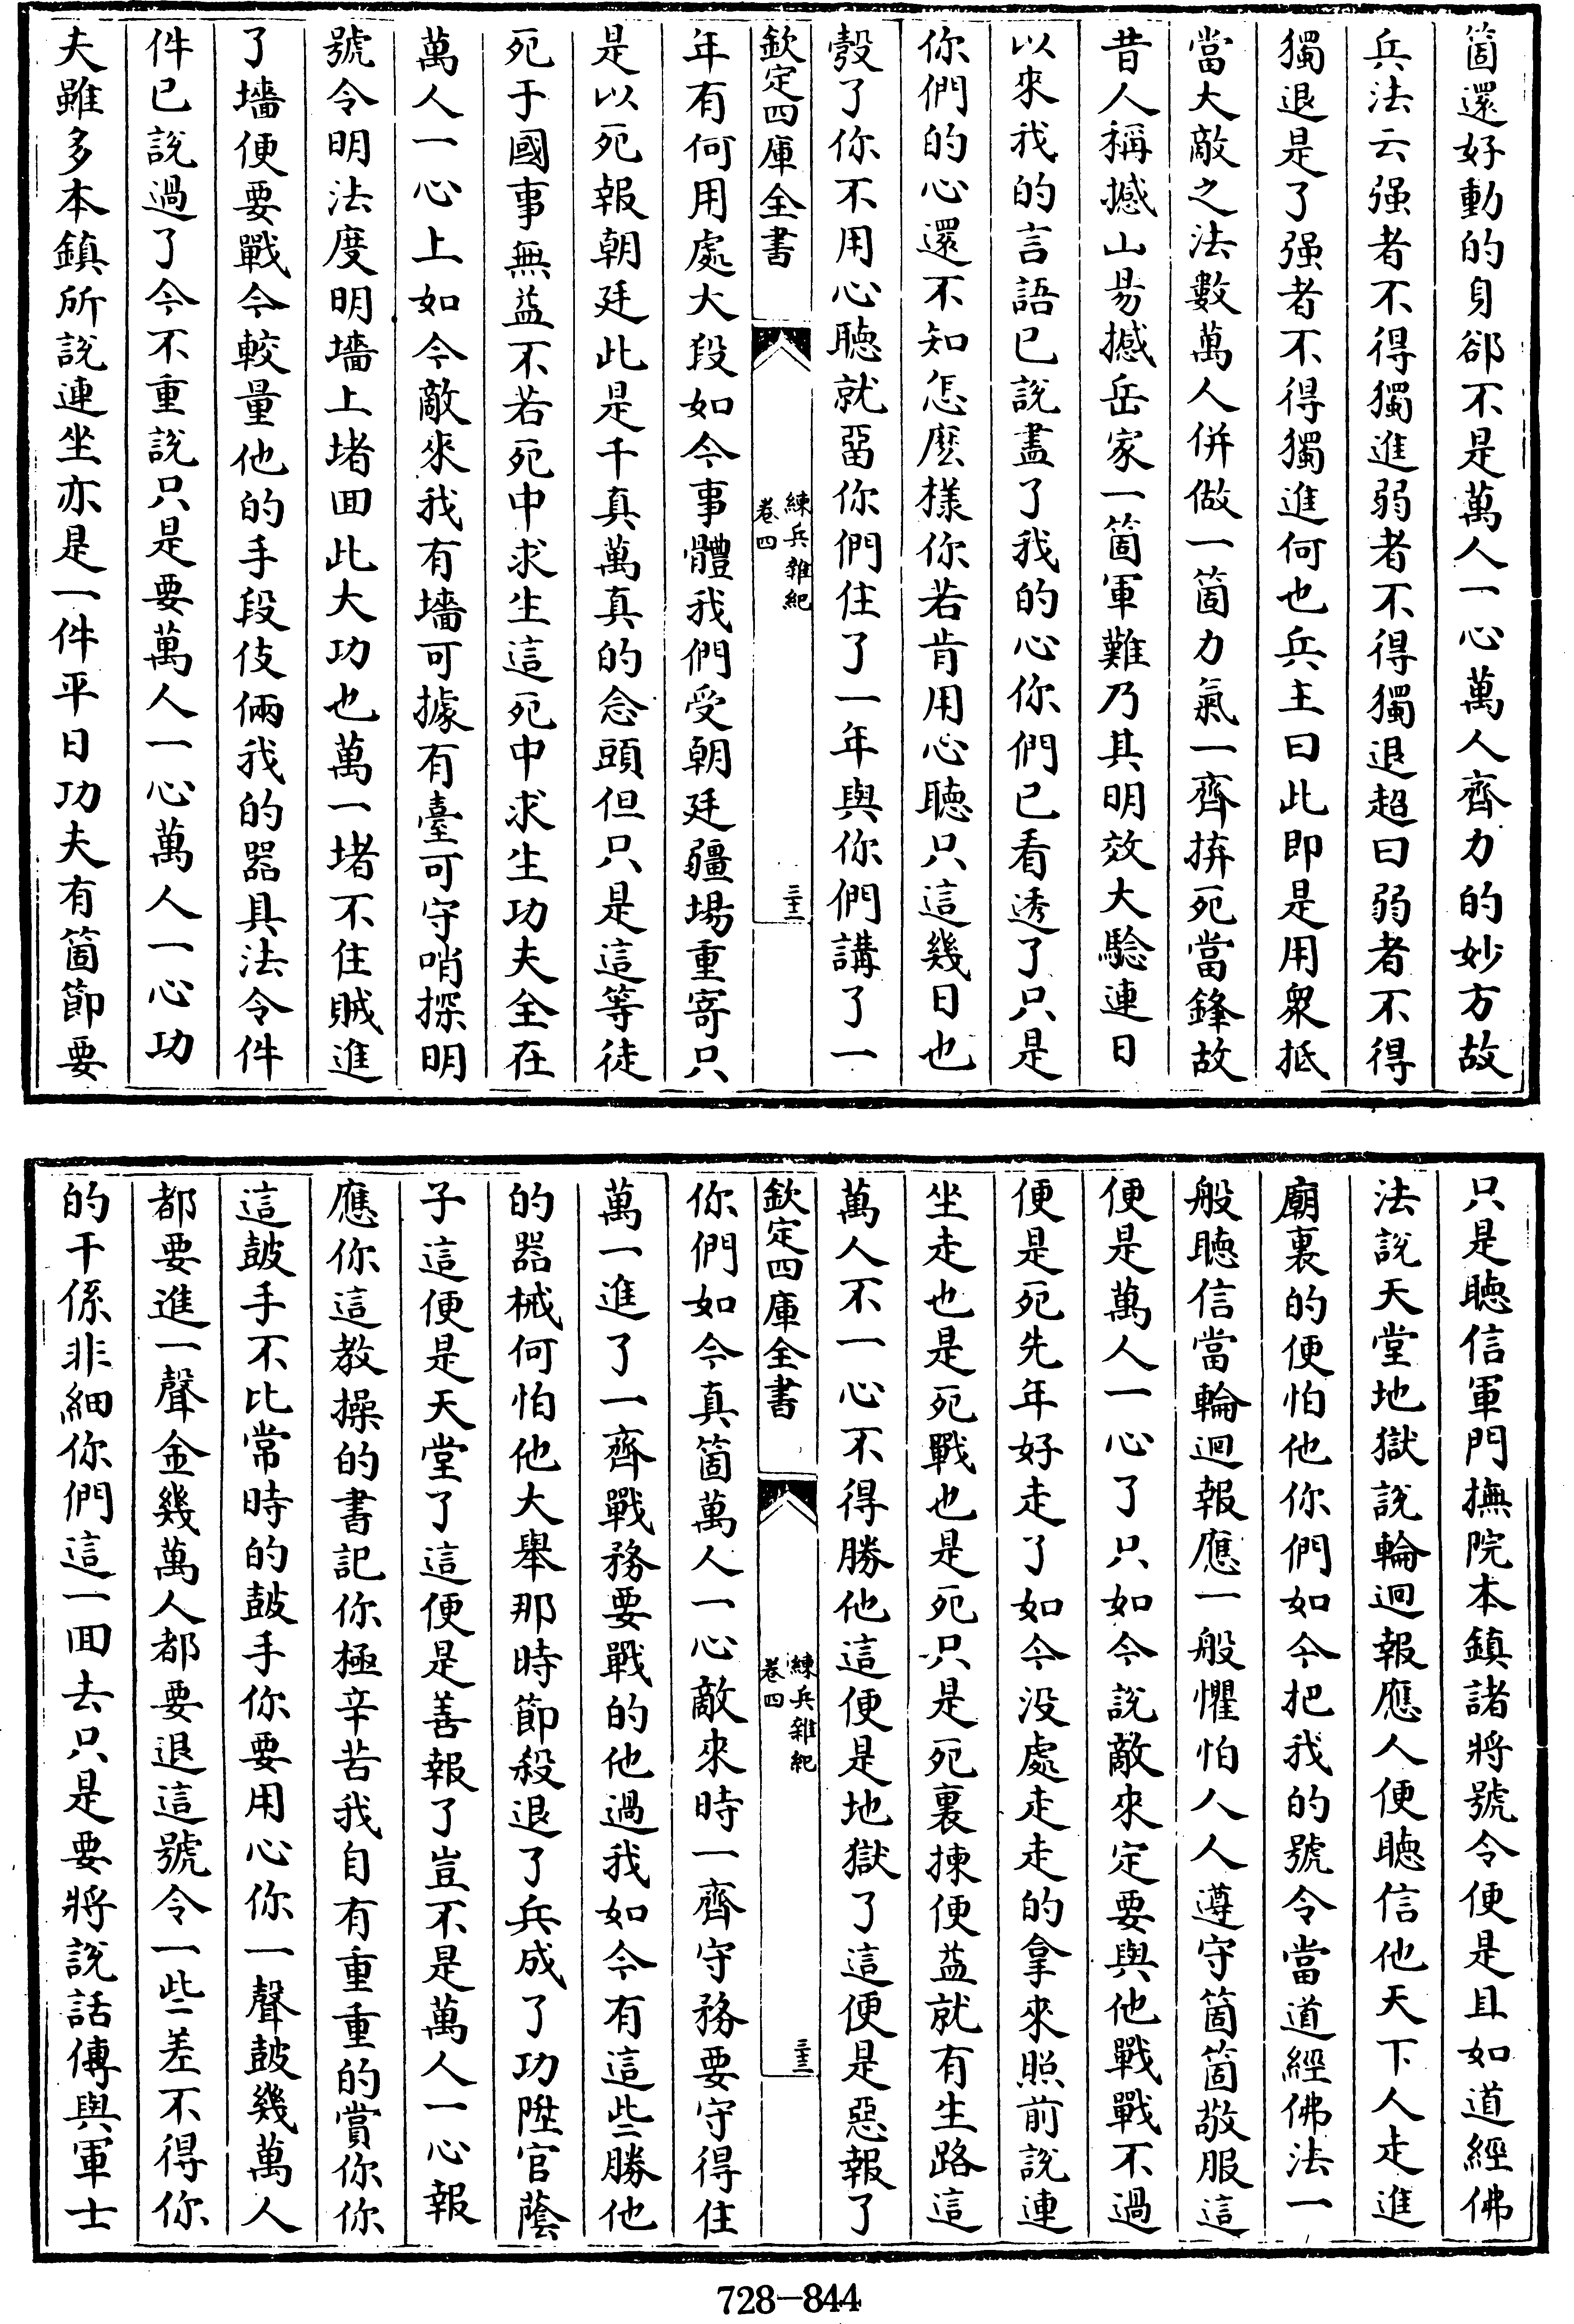 箇還好動的身郤不是萬人一心萬人齊力的妙方故
兵法云强者不得獨進弱者不得獨退超曰弱者不得
獨退是了强者不得獨進何也兵主曰此即是用衆抵
當大敵之法數萬人併做一箇力氣一齊拚死當鋒故
昔人稱撼山昜撼岳家一箇軍難乃其明效大驗連日
以來我的言語已說盡了我的心你們已看透了只是
你們的心還不知怎麽樣你若肯用心聽只這幾日也
彀了你不用心聽就畱你們住了一年與你們講了一
欽定四庫全書
練兵雜紀
卷四
三十二
年有何用處大段如今事體我們受朝廷疆場重寄只
是以死報朝廷此是千真萬真的念頭但只是這等徒
死于國事無益不若死中求生這死中求生功夫全在
萬人一心上如今敵來我有墻可據有臺可守哨探明
號令明法度明墻上堵囬此大功也萬一堵不住賊進
了墻便要戰今較量他的手段伎倆我的器具法令件
件已說過了今不重說只是要萬人一心萬人一心功
夫雖多本鎮所說連坐亦是一件平日功夫有箇節要
只是聽信軍門撫院本鎮諸將號令便是且如道經佛
法說天堂地獄說輪迴報應人便聽信他天下人走進
廟裏的便怕他你們如今把我的號令當道經佛法一
般聽信當輪迴報應一般懼怕人人遵守箇箇敬服這
便是萬人一心了只如今說敵來定要與他戰戰不過
便是死先年好走了如今没處走走的拿來照前說連
坐走也是死戰也是死只是死裏揀便益就有生路這
萬人不一心不得勝他這便是地獄了這便是惡報了
欽定四庫全書
練兵雜紀
卷四
三十三
你們如今真箇萬人一心敵來時一齊守務要守得住
萬一進了一齊戰務要戰的他過我如今有這些勝他
的器械何怕他大舉那時節殺退了兵成了功陞官蔭
子這便是天堂了這便是善報了豈不是萬人一心報
應你這教操的書記你極辛苦我自有重重的賞你你
這鼓手不比常時的鼓手你要用心你一聲鼓幾萬人
都要進一聲金幾萬人都要退這號令一些差不得你
的干係非細你們這一囬去只是要將說話傳與軍士
728-844